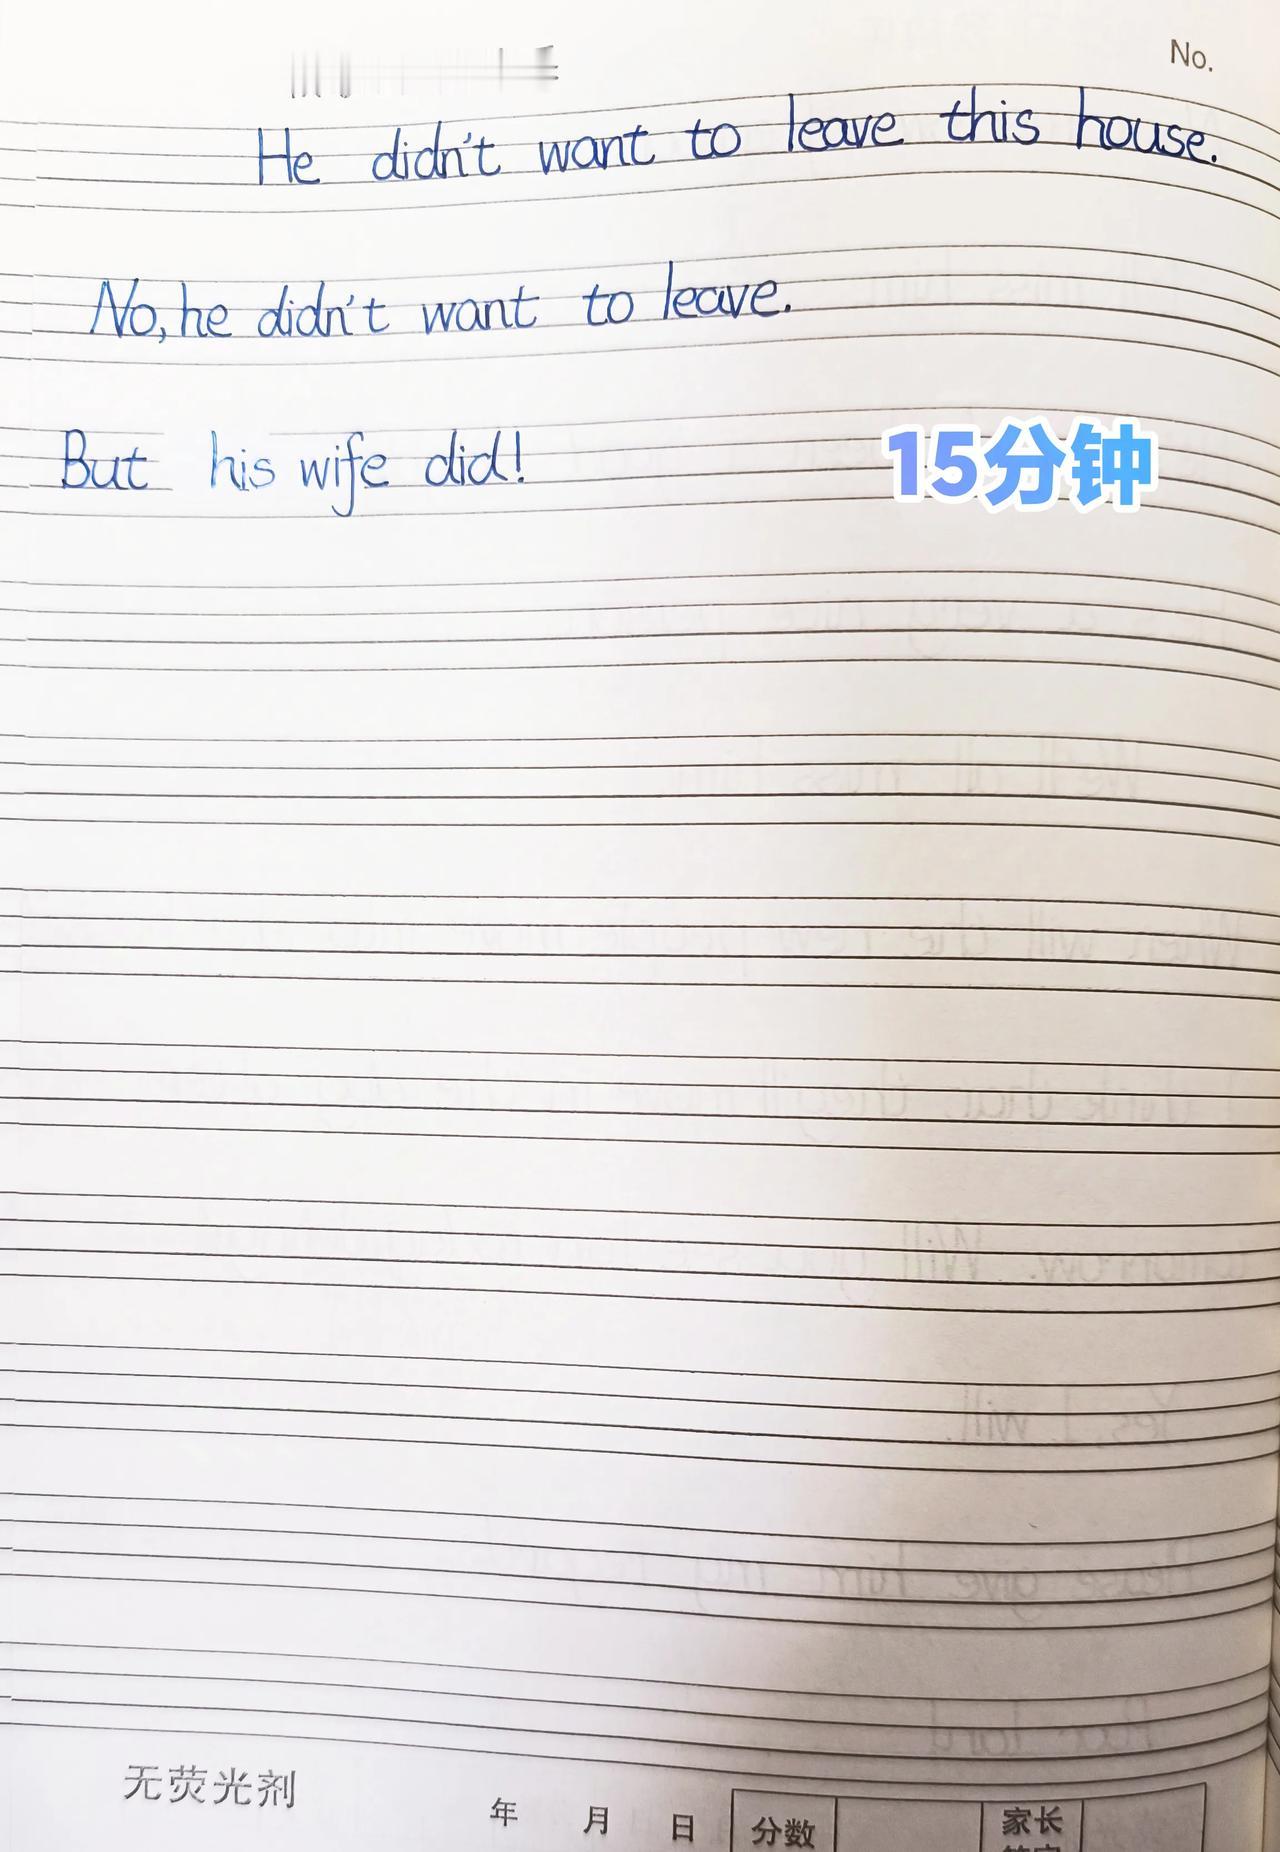 No.
He didn't want to leave this house.
No, he didn't want to leave.
But his wife did!
15分钟
无荧光剂
年 月 日 分数 家长